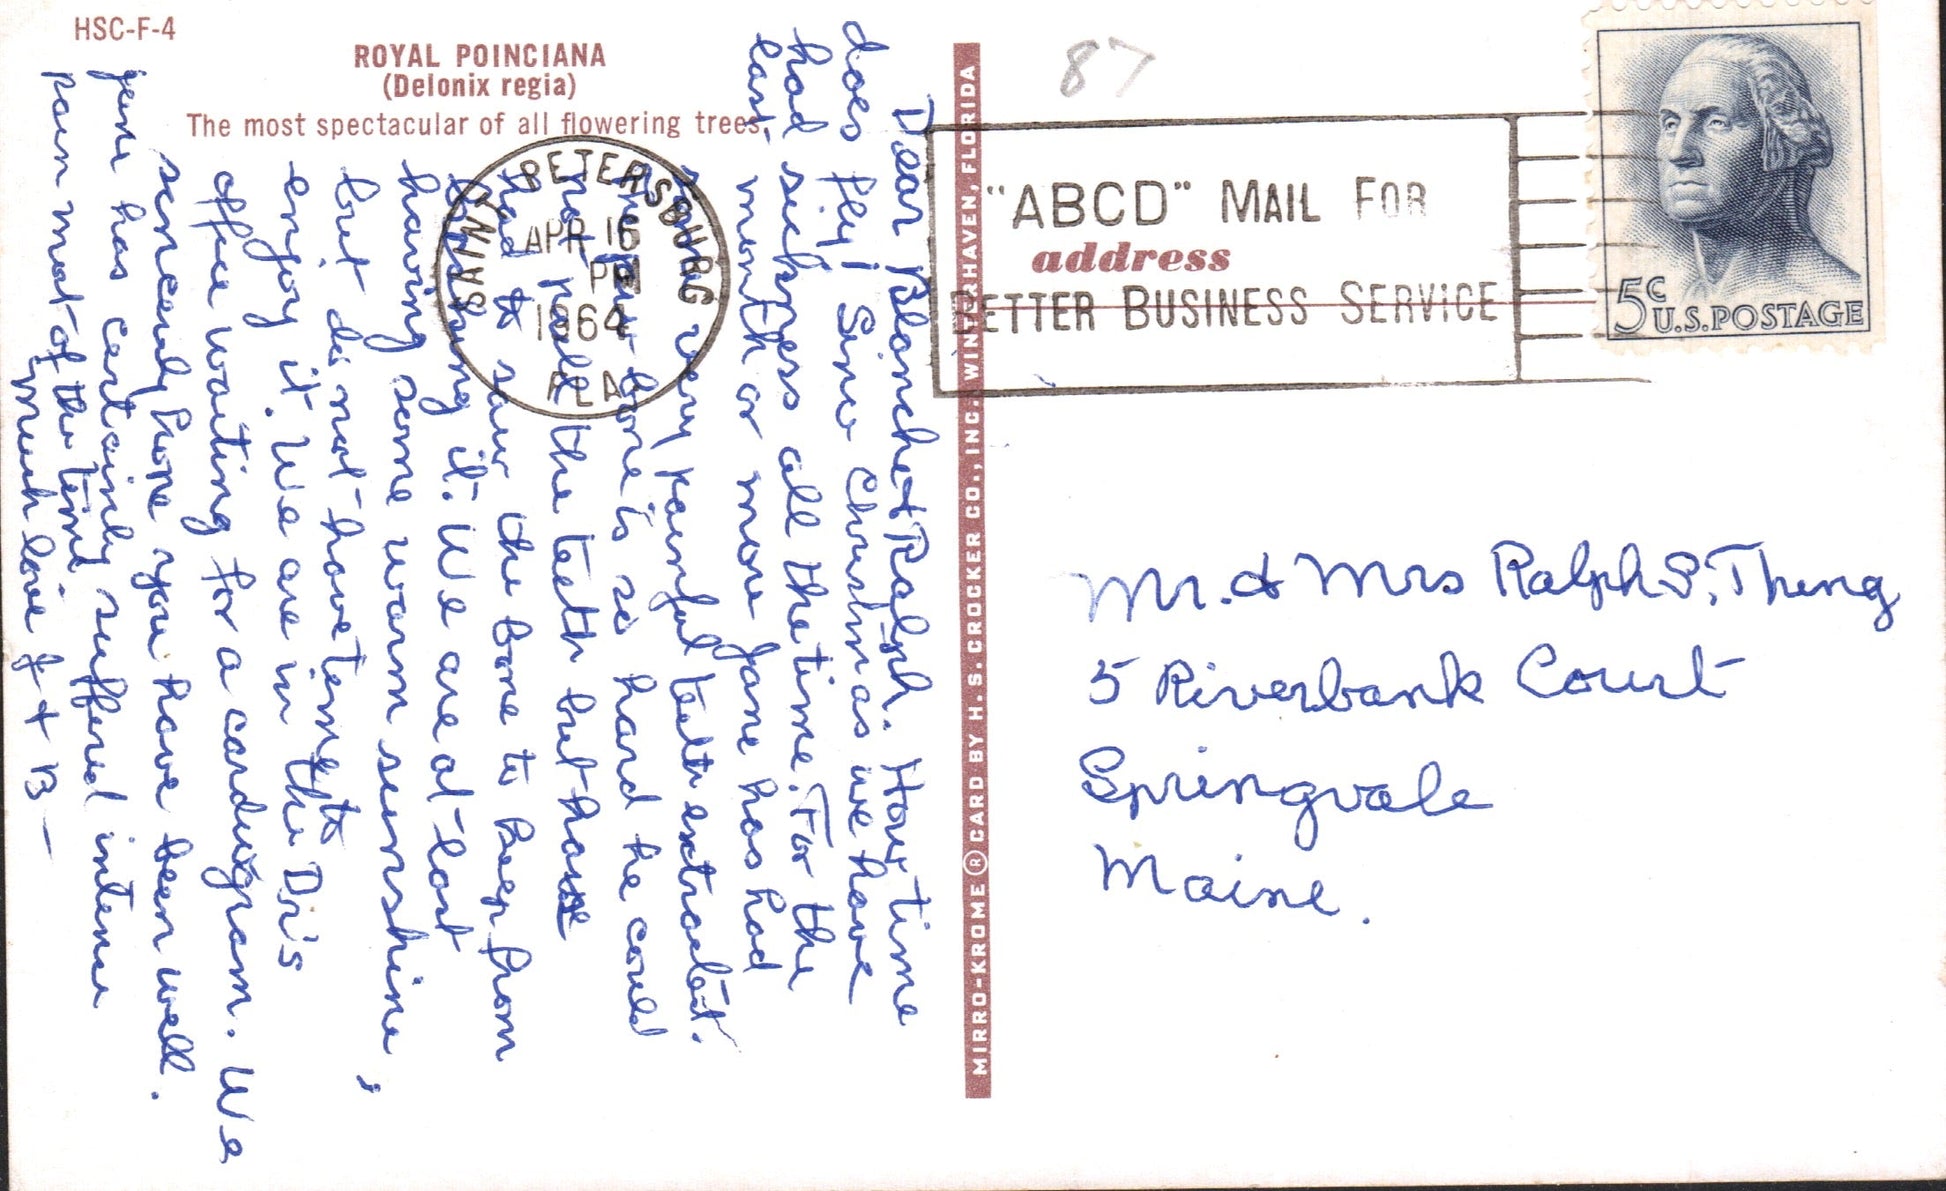 HSC-F-4
ROYAL POINCIANA
(Delonix regia)
The most spectacular of all flowering trees.
Dear Blanche & Ralph. How time
does fly! Since Christmas we have
had sickness all the time. For the
last month or more Jane has had
some very painful teeth extracted.
The jaw bone is so hard he could
not pull the teeth but have
had to saw the bone to keep from
crushing it. We are at last
having some warm sunshine,
but do not have time to
enjoy it. We are in the Dr's
office waiting for a cardiogram. We
sincerely hope you have been well.
Jane has certainly suffered intense
pain most of the time.
much love J + B -
SAINT PETERSBURG
APR 16
PM
1964
FLA
"ABCD" MAIL FOR
BETTER BUSINESS SERVICE
address
87
5c
U.S. POSTAGE
MIRRO-KROME ® CARD BY H. S. CROCKER CO., INC. WINTER HAVEN, FLORIDA
Mr. & Mrs Ralph S. Thing
5 Riverbank Court
Springvale
Maine.